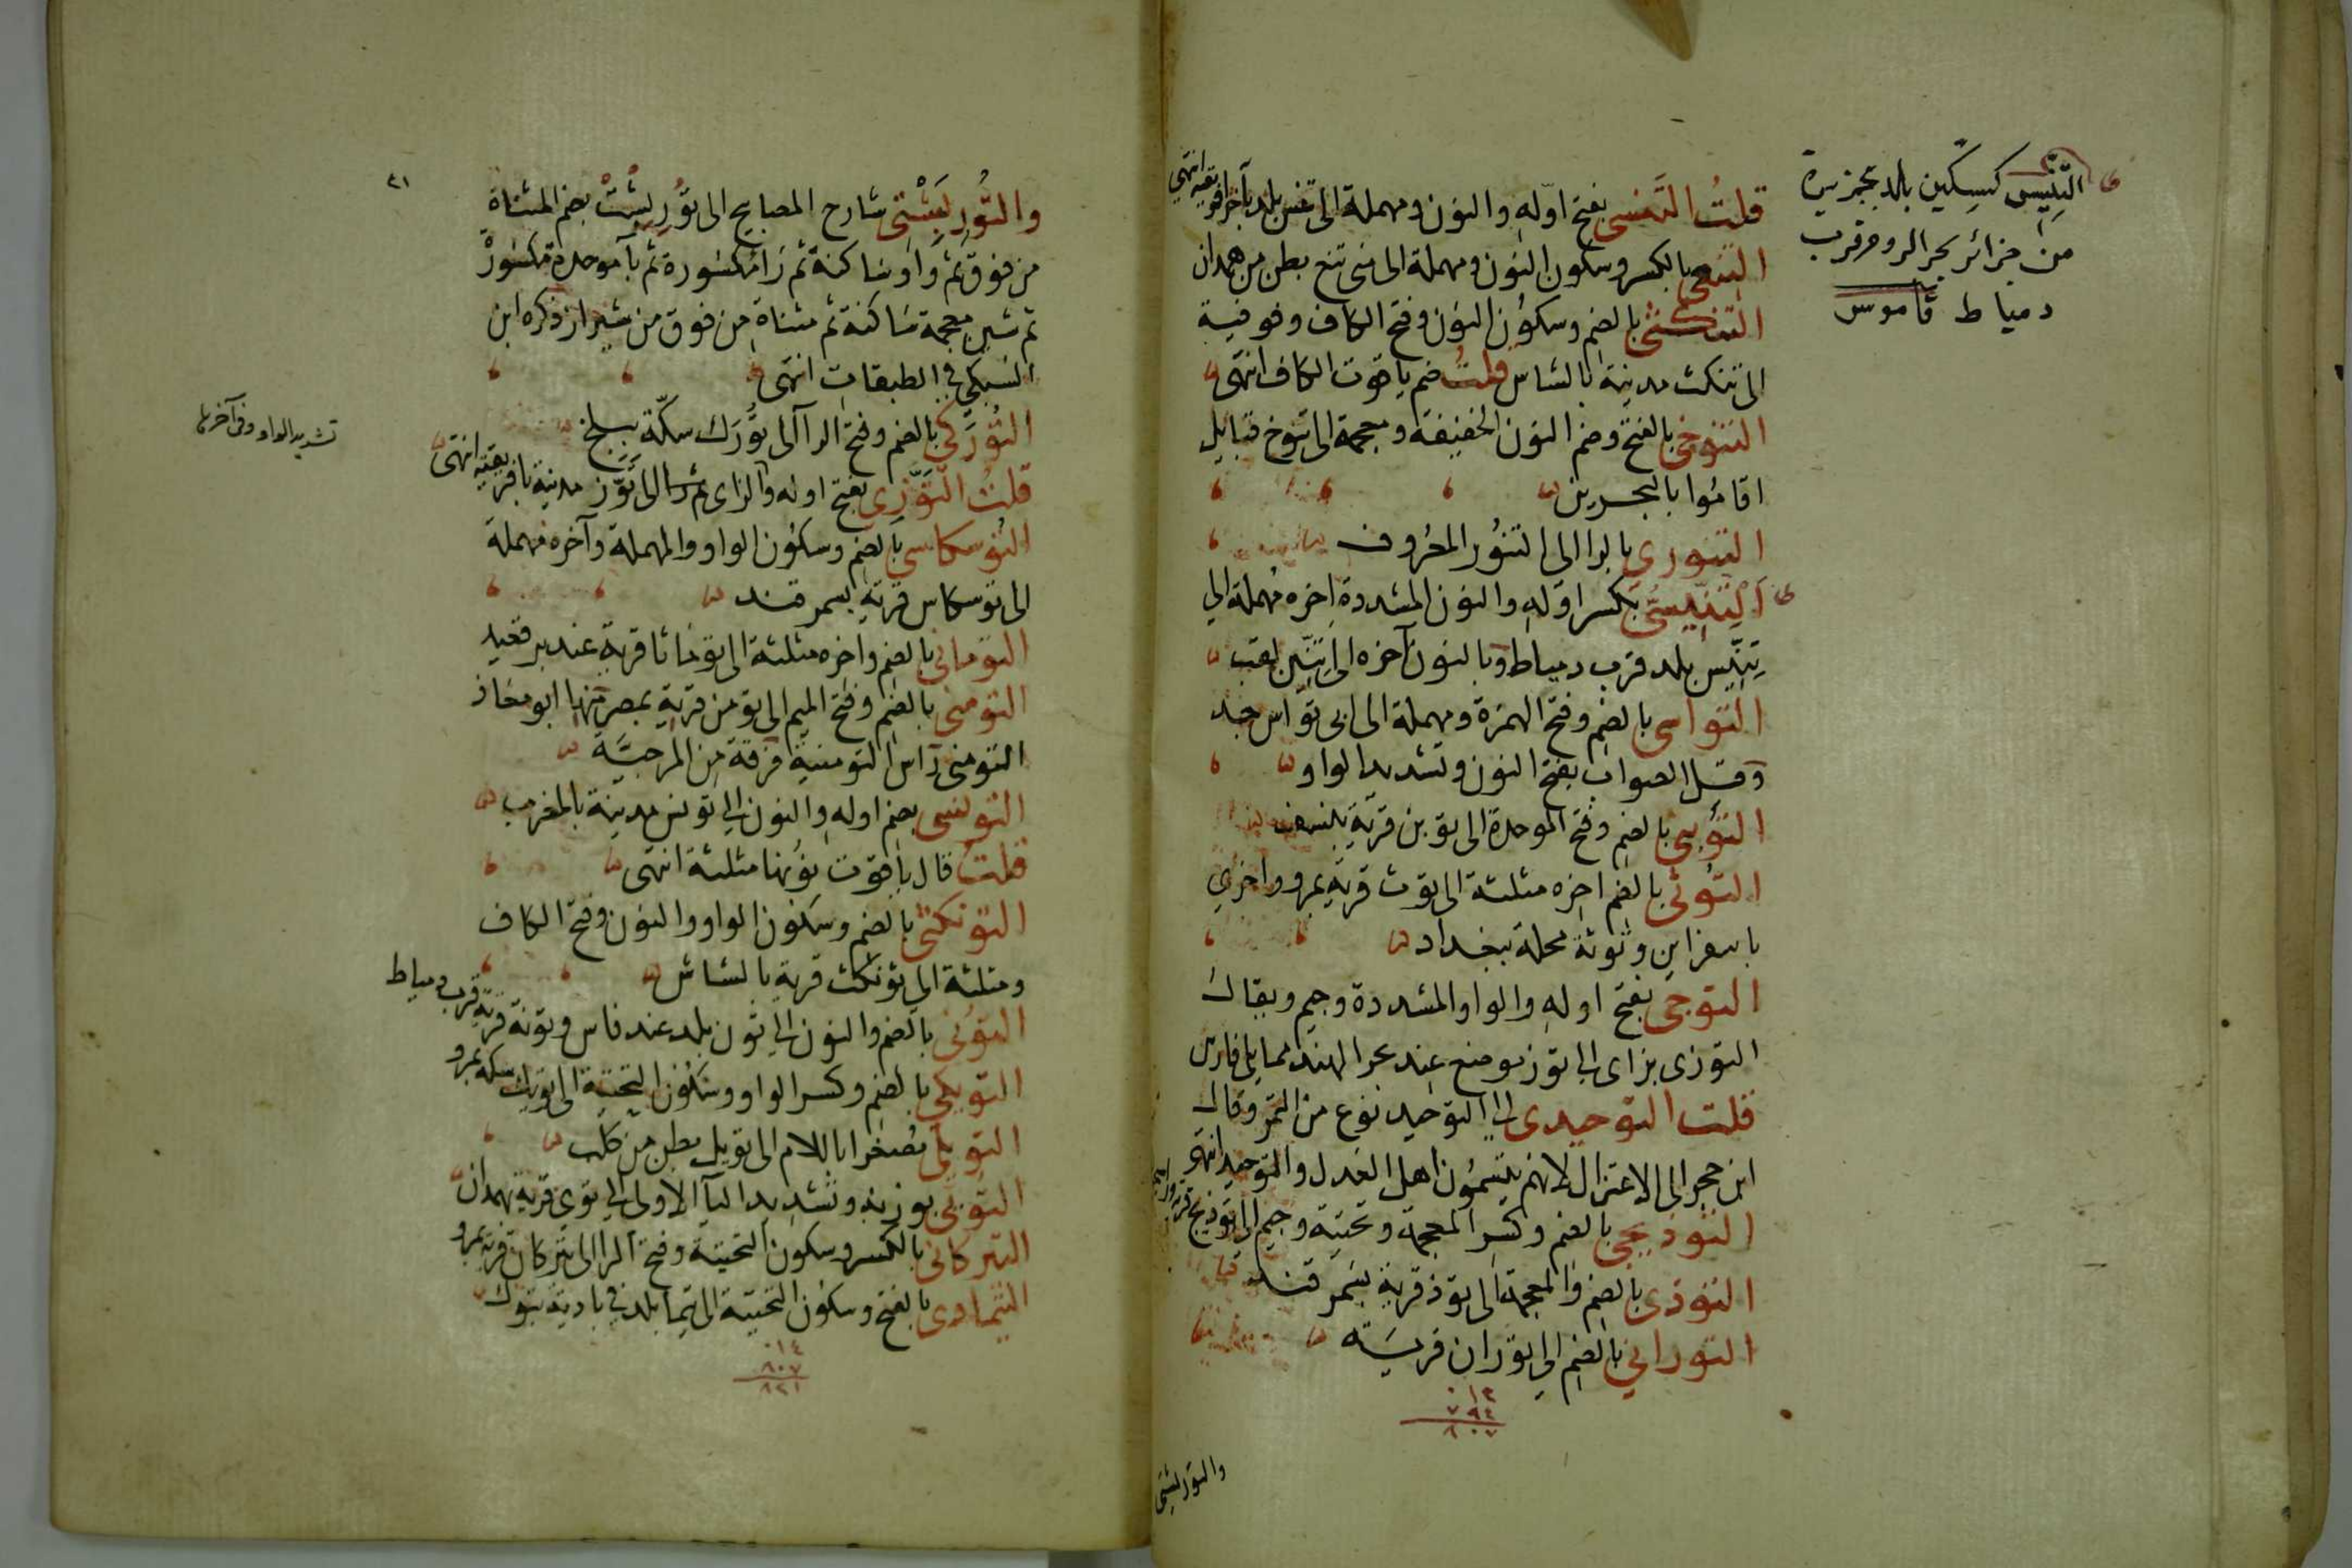 قلتُ التَّنَسى بفتح اوله والنون ومهملة الى تنس بلد بآخر افريقية انتهى
التنعى بالكسر وسكون النون ومهملة الى بنى تنع بطن من همدان
التنكتى بالضم وسكون النون وفتح الكاف وفوقية
الى تنكت مدينة بالشاش قلتُ ضم ياقوت الكاف انتهى
التنوخى بالفتح وضم النون الخفيفة ومعجمة الى تنوخ قبايل
اقاموا بالبحرين
التنورى بالرا الى التنور المعروف
التِنِّيسى بكسر اوله والنون المشددة اخره مهملة الى
تِنِّيس بلد قرب دمياط وبالنون آخره الى تِنِّين لقب
التواسى بالضم وفتح الهمزة ومهملة الى ابى تواس جد
وقيل الصواب بفتح النون وتشديد الواو
التُوبنى بالضم وفتح الموحدة الى توبن قرية بنسف
التُوثى بالضم اخره مثلثة الى توث قرية بمرو واخرى
باسفراين وتوثة محلة ببغداد
التوجى بفتح اوله والواو المشددة وجيم ويقال
التوزى بزاى الى توز موضع عند بحر الهند مما يلى فارس
قلت التوحيدى الى التوحيد نوع من التمر وقال
ابن حجر الى الاعتزال لانهم يتسمون اهل العدل والتوحيد انتهى
التوذيجى بالضم وكسر المعجمة وتحتية وجيم الى توذيج قرية
التوذى بالضم والمعجمة الى توذ قرية بسمرقند
التورانى بالضم الى توران قرية
١٣
٧٩٤
٨٠٧
والتوربشتى
التِنِّيسى كسكين بلد بجزيرة
من جزائر بحر الروم قرب
دمياط قاموس
٣١
والتُّورِبِشْتى شارح المصابيح الى تُورِبِشْتْ بضم المثناة
من فوق ثم واو ساكنة ثم را مكسورة ثم بآ موحدة مكسورة
ثم شين معجمة ساكنة ثم مثناة من فوق من شيراز ذكره ابن
السبكى فى الطبقات انتهى
التُورَكى بالضم وفتح الرا الى تُورَك سكّة ببلخ
قلتُ التَّوَّزَرى بفتح اوله والزاى ثم را الى تَوَّزر مدينة بافريقية انتهى
تشديد الواو وفى آخرها
التوسكاسى بالضم وسكون الواو والمهملة وآخره مهملة
الى توسكاس قرية بسمرقند
التوماثى بالضم واخره مثلثة الى توماثا قرية عند برقعيد
التومنى بالضم وفتح الميم الى تومن قرية بمصر منها ابو معاذ
التومنى راس التومنية فرقة من المرجئة
التونسى بضم اوله والنون الى تونس مدينة بالمغرب
قلتُ قال ياقوت نونها مثلثة انتهى
التونكثى بالضم وسكون الواو والنون وفتح الكاف
ومثلثة الى تونكث قرية بالشاش
التُونى بالضم والنون الى تون بلد عند قاين وتونة قرية قرب دمياط
التويكى بالضم وكسر الواو وسكون التحتية الى تويك سكة بمرو
التويلى مصغرا باللام الى تويل بطن من كلب
التُويى بوزنه وتشديد اليآ الاولى الى توى قرية بهمدان
التيركانى بالكسر وسكون التحتية وفتح الرا الى تيركان قرية بمرو
التيماوى بالفتح وسكون التحتية الى تيما بلد فى بادية تبوك
٠١٤
٨٠٧
٨٢١